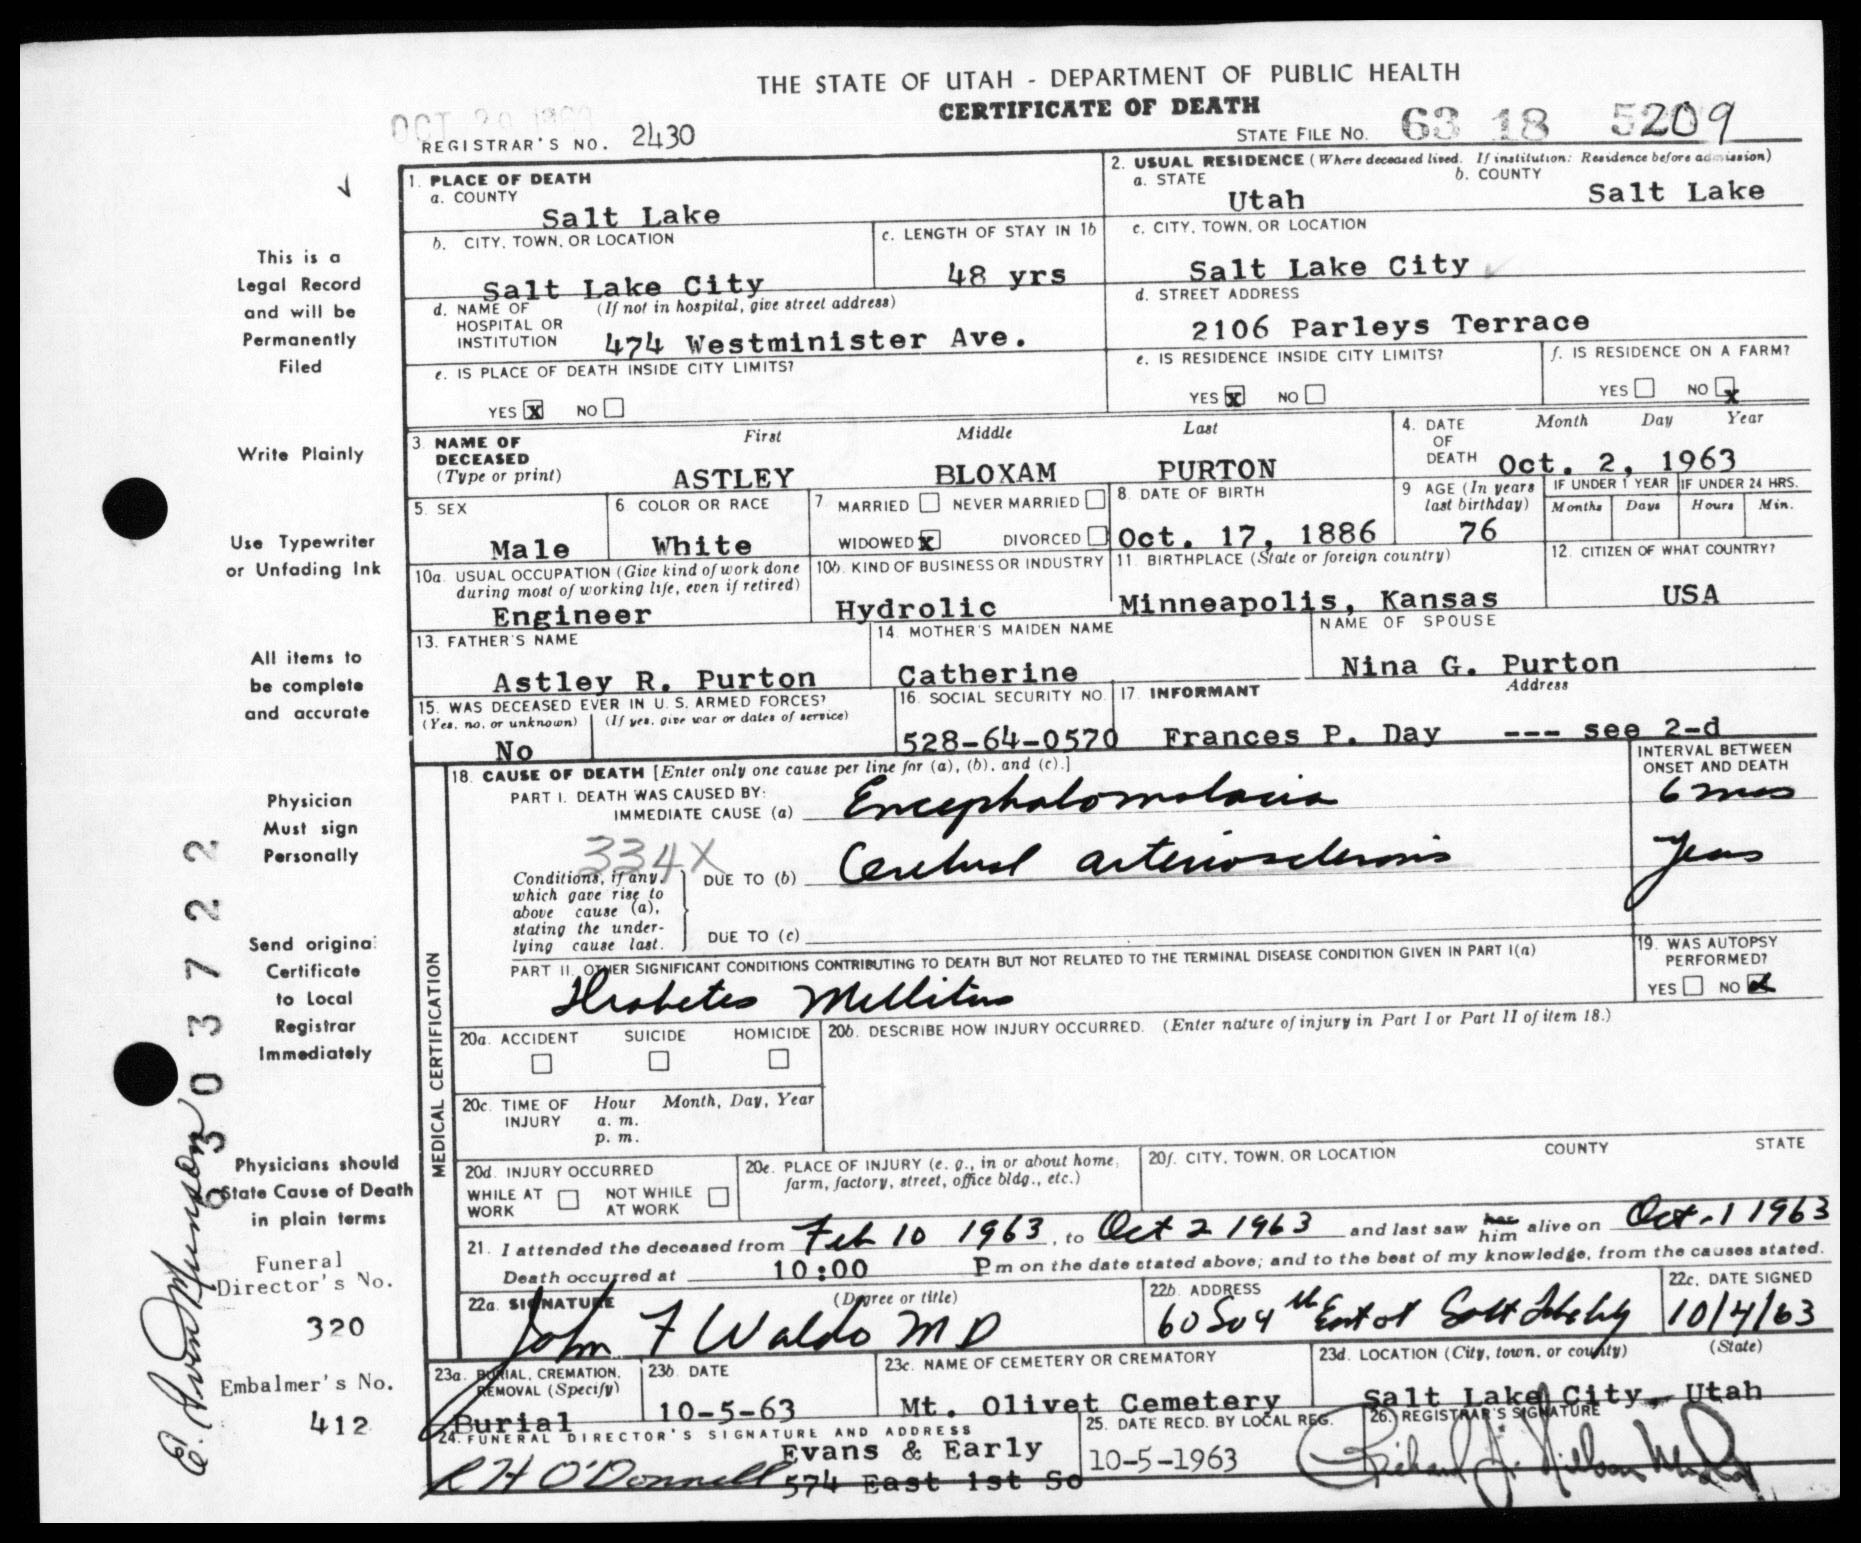 THE STATE OF UTAH - DEPARTMENT OF PUBLIC HEALTH
CERTIFICATE OF DEATH
REGISTRAR'S NO. 2430
STATE FILE NO. 63 18 5209
1. PLACE OF DEATH
a. COUNTY
Salt Lake
2. USUAL RESIDENCE (Where deceased lived. If institution: Residence before admission)
a. STATE
Utah
b. COUNTY
Salt Lake
b. CITY, TOWN, OR LOCATION
Salt Lake City
c. LENGTH OF STAY IN 1b
48 yrs
c. CITY, TOWN, OR LOCATION
Salt Lake City
d. NAME OF HOSPITAL OR INSTITUTION
(If not in hospital, give street address)
474 Westminister Ave.
d. STREET ADDRESS
2106 Parleys Terrace
e. IS PLACE OF DEATH INSIDE CITY LIMITS?
YES X NO
e. IS RESIDENCE INSIDE CITY LIMITS?
YES X NO
f. IS RESIDENCE ON A FARM?
YES NO X
3. NAME OF DECEASED
(Type or print)
First Middle Last
ASTLEY BLOXAM PURTON
4. DATE OF DEATH
Month Day Year
Oct. 2, 1963
5. SEX
Male
6. COLOR OR RACE
White
7. MARRIED NEVER MARRIED
WIDOWED X DIVORCED
8. DATE OF BIRTH
Oct. 17, 1886
9 AGE (In years last birthday)
76
IF UNDER 1 YEAR
Months Days
IF UNDER 24 HRS.
Hours Min.
10a. USUAL OCCUPATION (Give kind of work done during most of working life, even if retired)
Engineer
10b. KIND OF BUSINESS OR INDUSTRY
Hydrolic
11. BIRTHPLACE (State or foreign country)
Minneapolis, Kansas
12. CITIZEN OF WHAT COUNTRY?
USA
13. FATHER'S NAME
Astley R. Purton
14. MOTHER'S MAIDEN NAME
Catherine
NAME OF SPOUSE
Nina G. Purton
15. WAS DECEASED EVER IN U. S. ARMED FORCES?
(Yes, no, or unknown) (If yes, give war or dates of service)
No
16. SOCIAL SECURITY NO.
528-64-0570
17. INFORMANT
Address
Frances P. Day --- see 2-d
MEDICAL CERTIFICATION
18. CAUSE OF DEATH [Enter only one cause per line for (a), (b), and (c).]
INTERVAL BETWEEN ONSET AND DEATH
PART I. DEATH WAS CAUSED BY:
IMMEDIATE CAUSE (a) Encephalomalacia
6 mos
334X
Conditions, if any, which gave rise to above cause (a), stating the underlying cause last.
DUE TO (b) Cerebral arteriosclerosis
Years
DUE TO (c)
PART II. OTHER SIGNIFICANT CONDITIONS CONTRIBUTING TO DEATH BUT NOT RELATED TO THE TERMINAL DISEASE CONDITION GIVEN IN PART I(a)
Diabetes Mellitus
19. WAS AUTOPSY PERFORMED?
YES NO X
20a. ACCIDENT SUICIDE HOMICIDE
20b. DESCRIBE HOW INJURY OCCURRED. (Enter nature of injury in Part I or Part II of item 18.)
20c. TIME OF INJURY
Hour Month, Day, Year
a. m.
p. m.
20d. INJURY OCCURRED
WHILE AT WORK NOT WHILE AT WORK
20e. PLACE OF INJURY (e. g., in or about home, farm, factory, street, office bldg., etc.)
20f. CITY, TOWN, OR LOCATION COUNTY STATE
21. I attended the deceased from Feb 10 1963, to Oct 2 1963 and last saw her him alive on Oct. 1 1963
Death occurred at 10:00 P m on the date stated above; and to the best of my knowledge, from the causes stated.
22a. SIGNATURE (Degree or title)
John F Waldo MD
22b. ADDRESS
60 So 4th East St Salt Lake City
22c. DATE SIGNED
10/4/63
23a. BURIAL, CREMATION, REMOVAL (Specify)
Burial
23b. DATE
10-5-63
23c. NAME OF CEMETERY OR CREMATORY
Mt. Olivet Cemetery
23d. LOCATION (City, town, or county) (State)
Salt Lake City, Utah
24. FUNERAL DIRECTOR'S SIGNATURE AND ADDRESS
R H O'Donnell
Evans & Early
574 East 1st So
25. DATE RECD. BY LOCAL REG.
10-5-1963
26. REGISTRAR'S SIGNATURE
This is a
Legal Record
and will be
Permanently
Filed
Write Plainly
Use Typewriter
or Unfading Ink
All items to
be complete
and accurate
Physician
Must sign
Personally
Send original
Certificate
to Local
Registrar
Immediately
Physicians should
State Cause of Death
in plain terms
Funeral
Director's No.
320
Embalmer's No.
412
63 03722